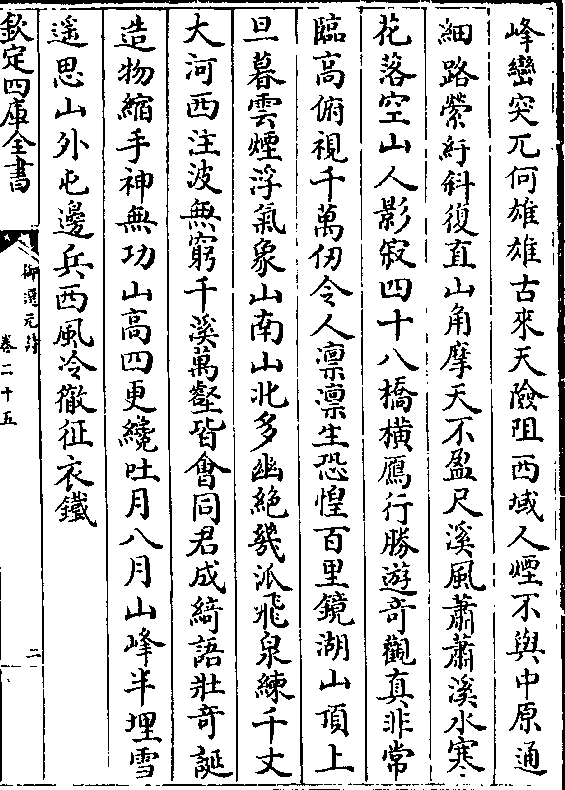 峰巒突兀何雄雄古來天險阻西域人煙不與中原通
細路縈紆斜復直山角摩天不盈尺溪風蕭蕭溪水寒
花落空山人影寂四十八橋橫鴈行勝遊奇觀真非常
臨高俯視千萬仞令人凛凛生恐惶百里鏡湖山頂上
旦暮雲煙浮氣象山南山北多幽絶幾派飛泉練千丈
大河西注波無窮千溪萬壑皆會同君成綺語壯奇誕
造物縮手神無功山高四更纔吐月八月山峰半埋雪
遥思山外屯邊兵西風冷徹征衣鐵
欽定四庫全書
御選元詩
卷二十五
二